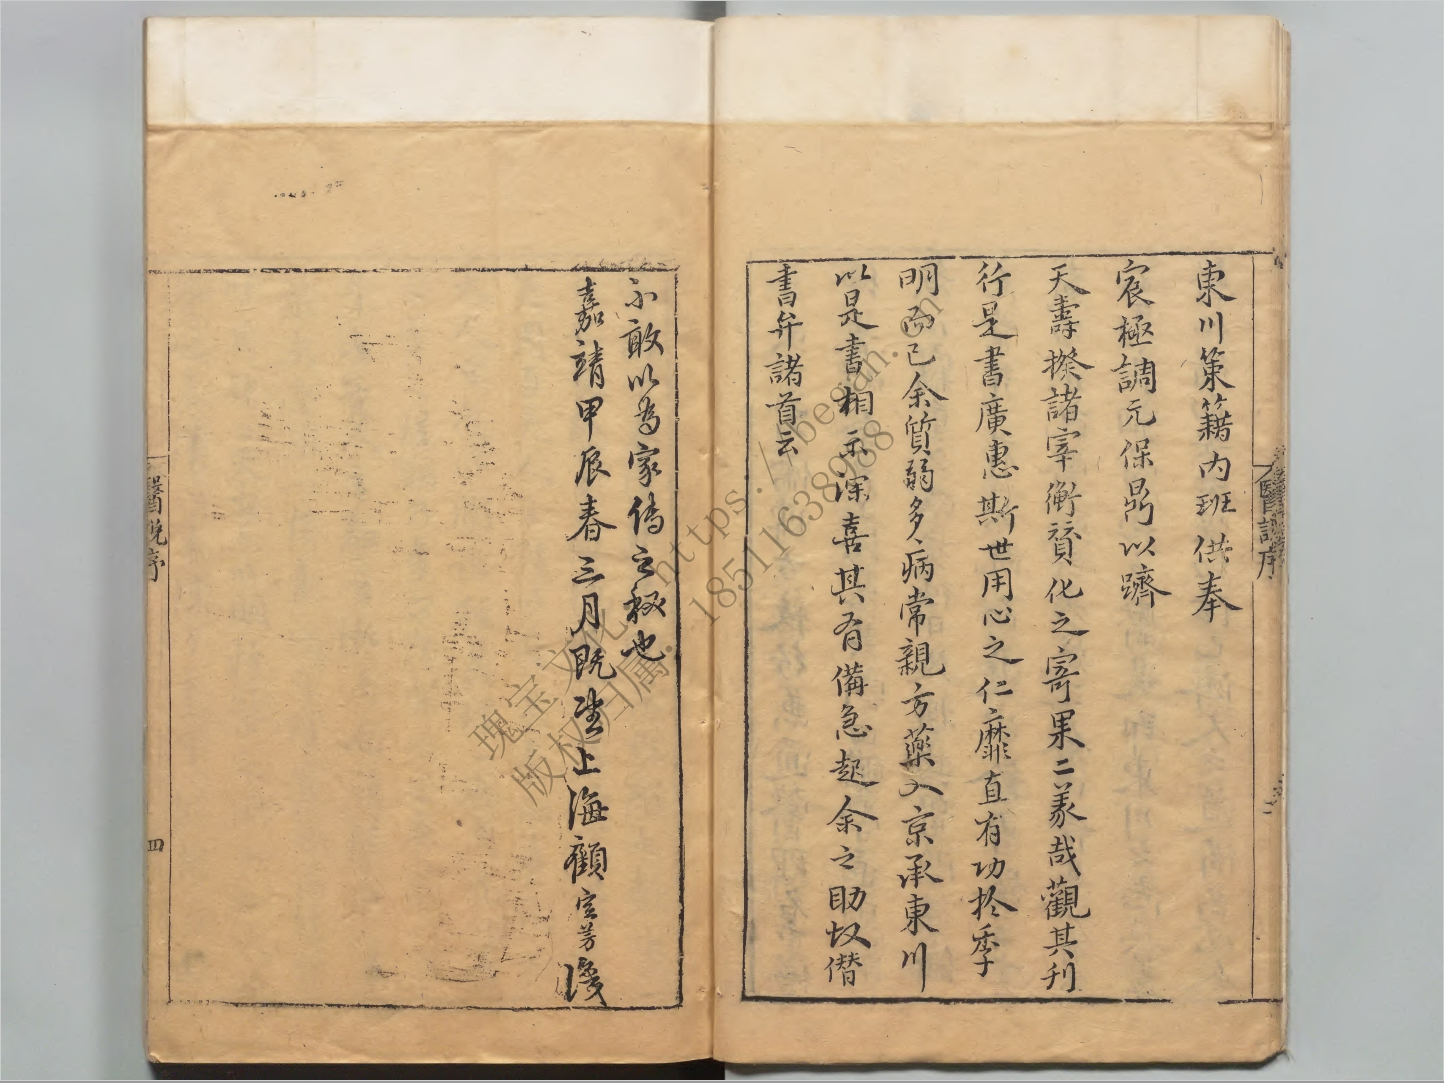 東川策籍内班供奉
宸極調元保昺以躋
天壽揆諸宰衡贊化之寄果二義哉觀其刋
行是書廣惠斯世用心之仁靡直有功於季
明而已余質弱多病常親方藥入京承東川
以是書相示深喜其有備急起余之助故僣
書弁諸首云
不敢以為家傳之秘也
嘉靖甲辰春三月既望上海顧定芳謏
醫說序
四
瑰宝文化 https://began.cn
版权归属: 18511638988